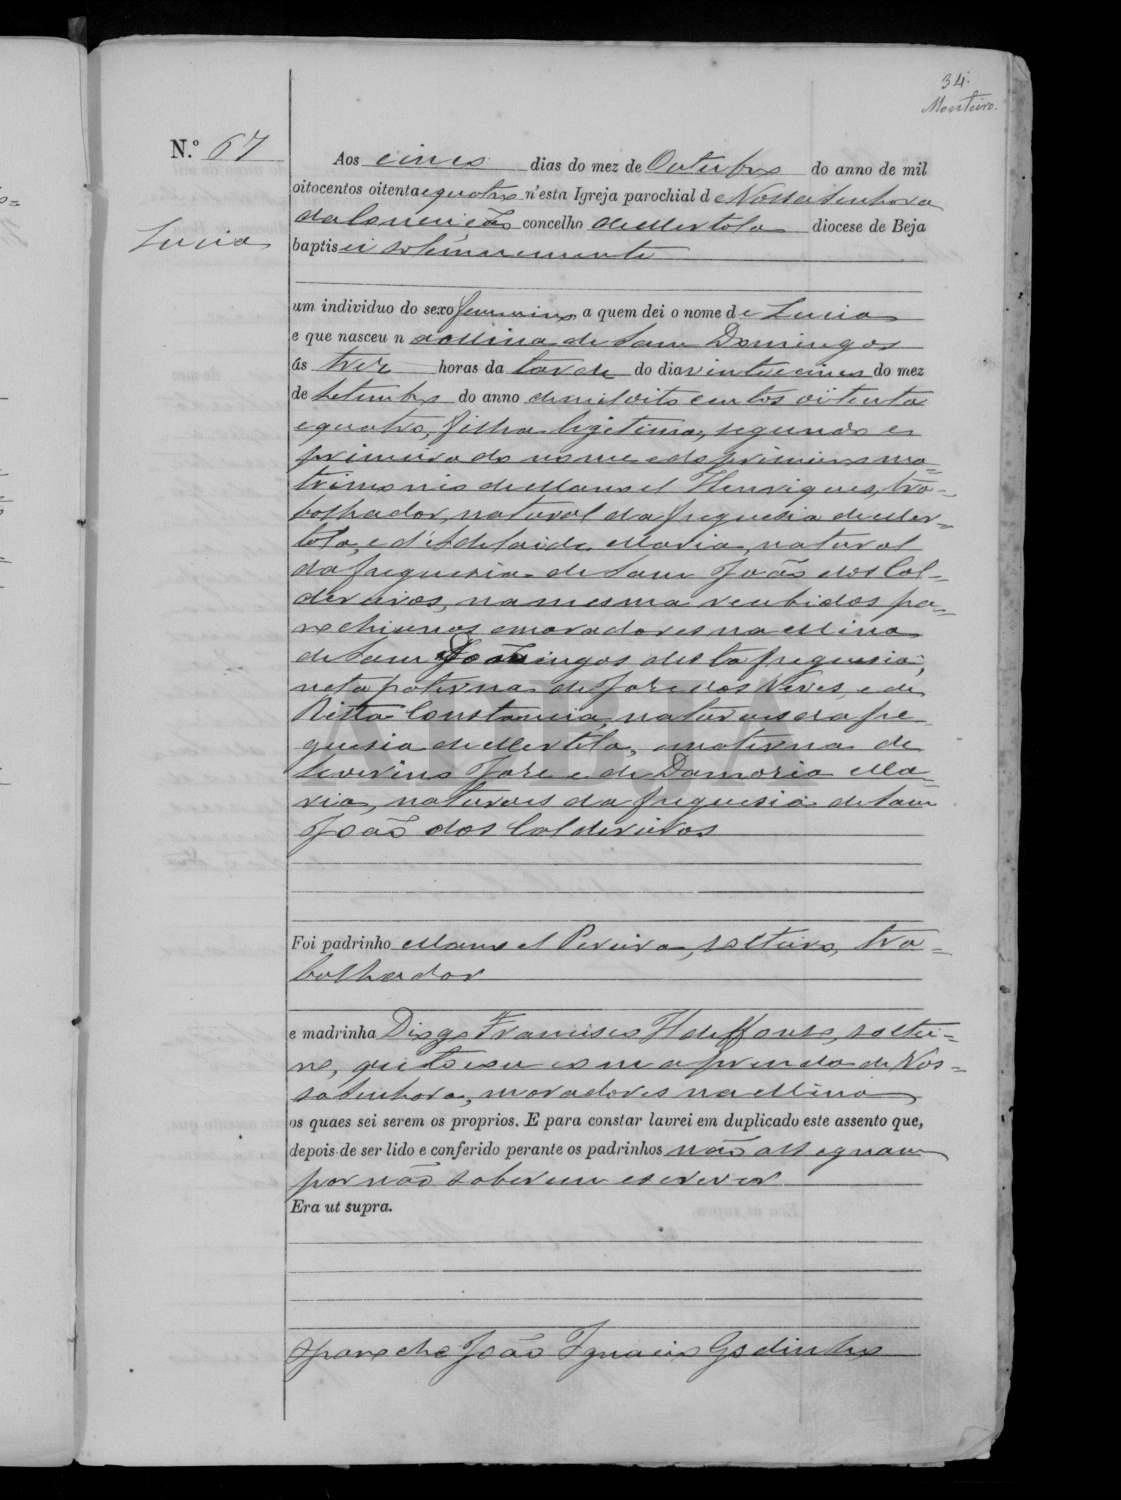 34.
Monteiro.
N.º 67
Aos cinco dias do mez de Outubro do anno de mil
oitocentos oitenta e quatro n'esta Igreja parochial de Nossa Senhora
da Conceição concelho de Mertola diocese de Beja
baptisei solemnemente
Lucia
um individuo do sexo femenino a quem dei o nome de Lucia
e que nasceu na Mina de Sam Domingos
ás trez horas da tarde do dia vinte e cinco do mez
de Setembro do anno de mil oito centos oitenta
e quatro, filha legitima, segunda e
primeira do nome e do primeiro ma=
trimonio de Manoel Henriques, tra=
balhador, natural da freguesia de Mer=
tola, e d'Adelaide Maria, natural
da freguesia de Sam João dos Cal=
deireiros, na mesma recebidos pa=
rochianos e moradores na Mina
de Sam Domingos desta freguesia;
neta paterna de Jose das Neves, e de
Ritta Constancia, naturaes da fre
guesia de Mertola, e materna de
Severino Jose e de Damazia Ma=
ria, naturaes da freguesia de Sam
João dos Caldeireiros
Foi padrinho Manoel Pereira, solteiro, tra=
balhador
e madrinha Diogo Francisco Ildeffonso, soltei=
ro, que tocou com a prenda de Nos=
sa Senhora, moradores na Mina,
os quaes sei serem os proprios. E para constar lavrei em duplicado este assento que,
depois de ser lido e conferido perante os padrinhos não assignam
por não saberem escrever
Era ut supra.
O parocho João Ignacio Godinho
ADBJA